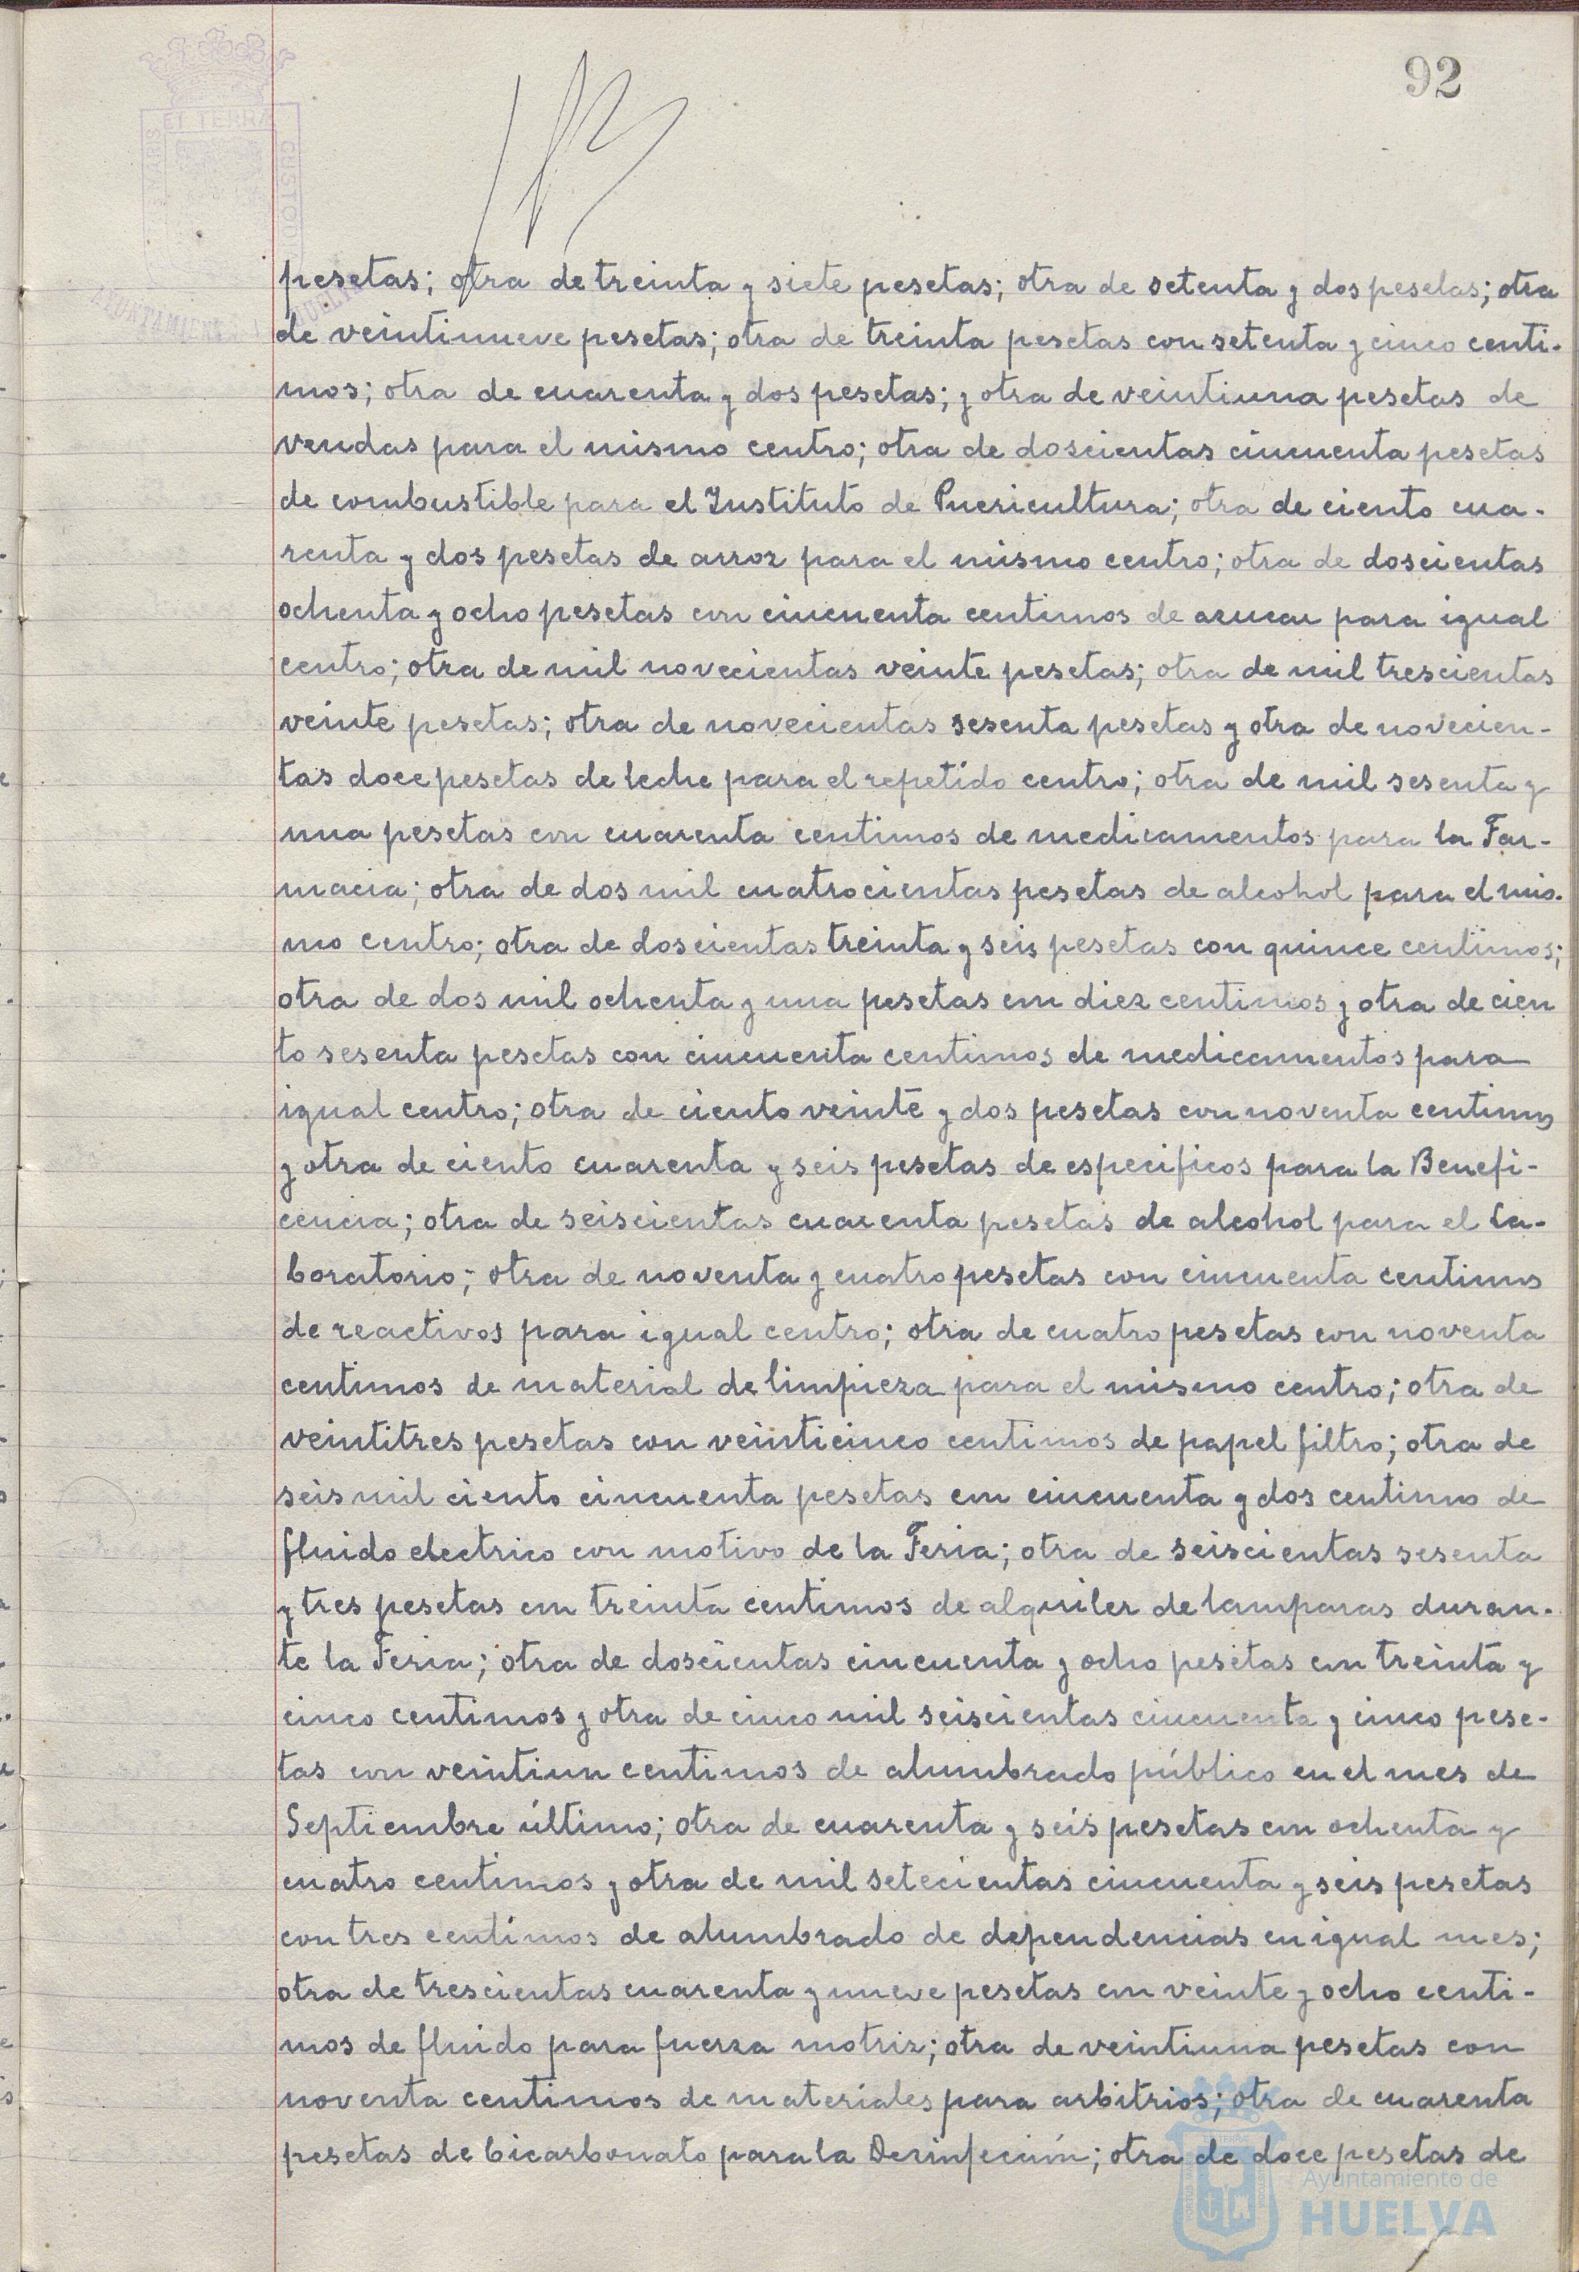 92
ET TERRA
CUSTODIA
AYUNTAMIENTO
pesetas; otra de treinta y siete pesetas; otra de setenta y dos pesetas; otra
de veintinueve pesetas; otra de treinta pesetas con setenta y cinco centi-
mos; otra de cuarenta y dos pesetas; y otra de veintiuna pesetas de
vendas para el mismo centro; otra de doscientas cincuenta pesetas
de combustible para el Instituto de Puericultura; otra de ciento cua-
renta y dos pesetas de arroz para el mismo centro; otra de doscientas
ochenta y ocho pesetas con cincuenta centimos de azucar para igual
centro; otra de mil novecientas veinte pesetas; otra de mil trescientas
veinte pesetas; otra de novecientas sesenta pesetas y otra de novecien-
tas doce pesetas de leche para el repetido centro; otra de mil sesenta y
una pesetas con cuarenta centimos de medicamentos para la Far-
macia; otra de dos mil cuatrocientas pesetas de alcohol para el mis-
mo centro; otra de doscientas treinta y seis pesetas con quince centimos;
otra de dos mil ochenta y una pesetas con diez centimos y otra de cien
to sesenta pesetas con cincuenta centimos de medicamentos para
igual centro; otra de ciento veinte y dos pesetas con noventa centimos
y otra de ciento cuarenta y seis pesetas de especificos para la Benefi-
cencia; otra de seiscientas cuarenta pesetas de alcohol para el La-
boratorio; otra de noventa y cuatro pesetas con cincuenta centimos
de reactivos para igual centro; otra de cuatro pesetas con noventa
centimos de material de limpieza para el mismo centro; otra de
veintitres pesetas con veinticinco centimos de papel filtro; otra de
seis mil ciento cincuenta pesetas con cincuenta y dos centimos de
fluido electrico con motivo de la Feria; otra de seiscientas sesenta
y tres pesetas con treinta centimos de alquiler de lamparas duran-
te la Feria; otra de doscientas cincuenta y ocho pesetas con treinta y
cinco centimos y otra de cinco mil seiscientas cincuenta y cinco pese-
tas con veintiun centimos de alumbrado público en el mes de
Septiembre último; otra de cuarenta y seis pesetas con ochenta y
cuatro centimos y otra de mil setecientas cincuenta y seis pesetas
con tres centimos de alumbrado de dependencias en igual mes;
otra de trescientas cuarenta y nueve pesetas con veinte y ocho centi-
mos de fluido para fuerza motriz; otra de veintiuna pesetas con
noventa centimos de materiales para arbitrios; otra de cuarenta
pesetas de bicarbonato para la Desinfección; otra de doce pesetas de
Ayuntamiento de
HUELVA